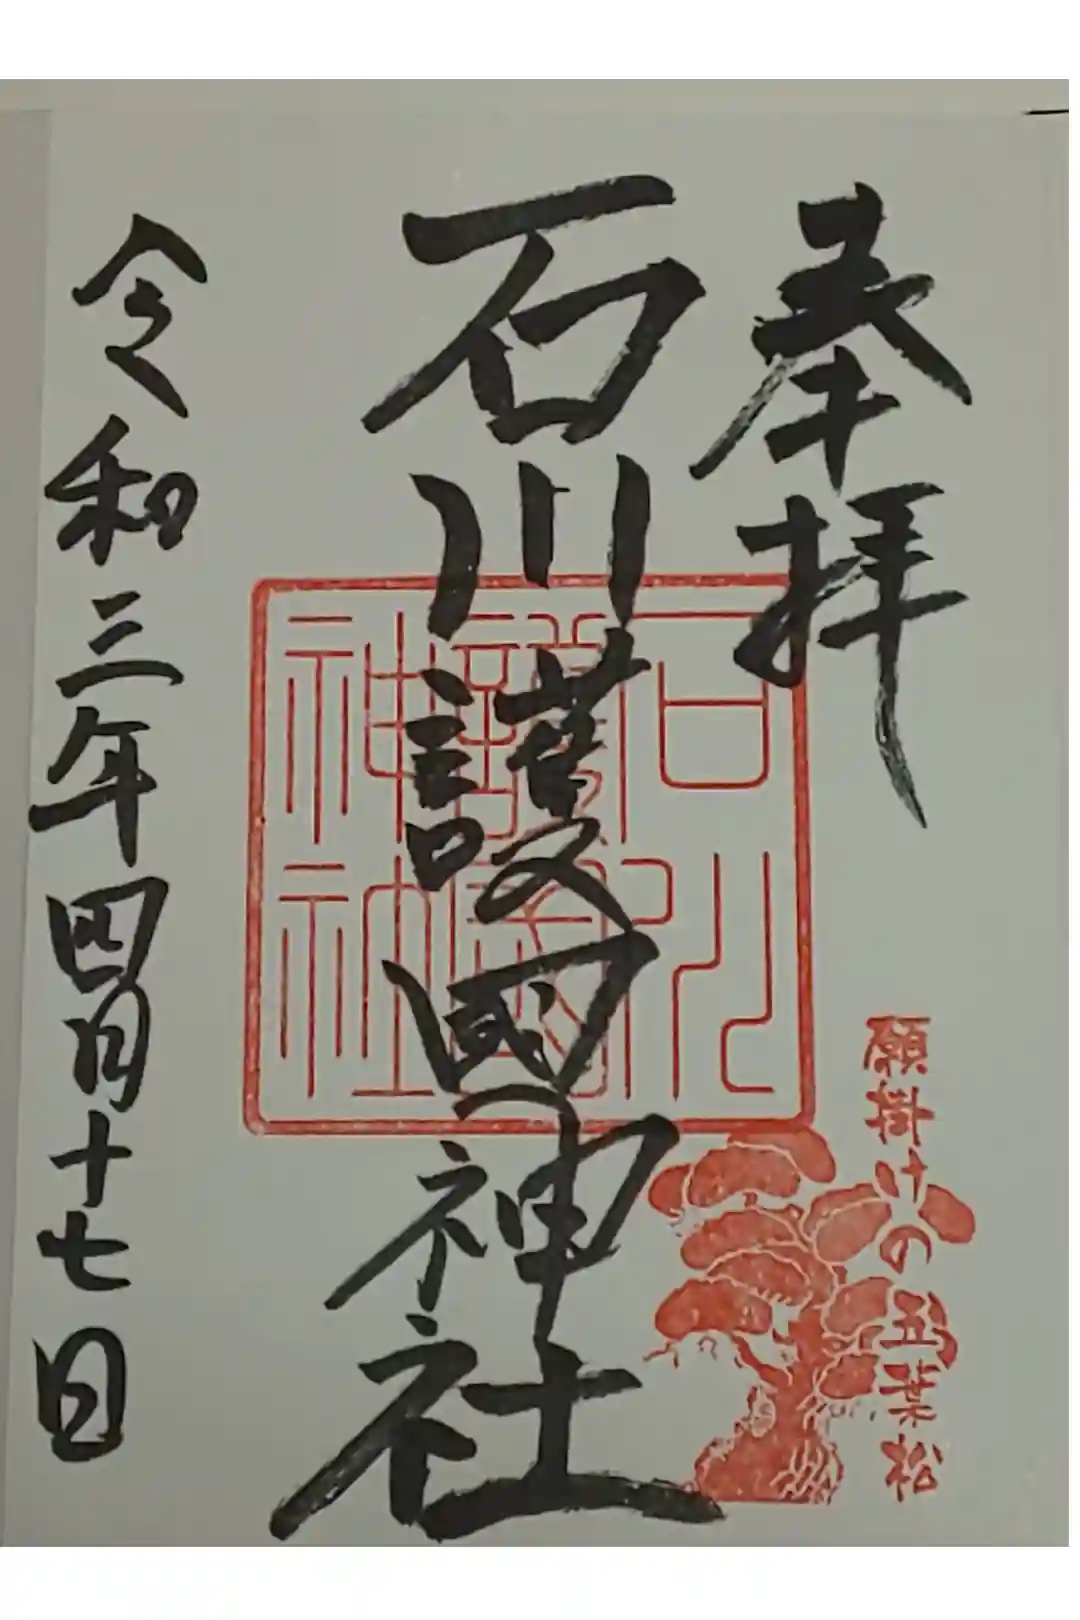 奉拝
願掛けの五葉松
石川護國神社
石川
護國
神社
令和三年四月十七日